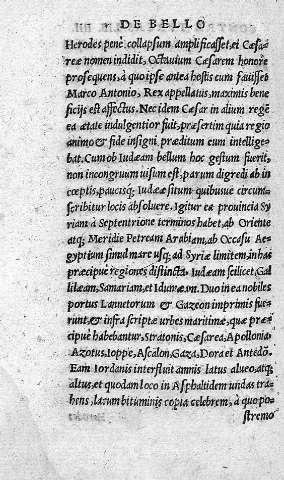 DE BELLO
Herodes penè collapsum amplificasset, ei Cæsa
reæ nomen indidit, Octauium Cæsarem honore
prosequens, à quo ipse antea hostis cum fauisset
Marco Antonio, Rex appellatus, maximis bene
ficijs est affectus. Nec idem Cæsar in alium regẽ
ea ætate indulgentior fuit, præsertim quia regio
animo & fide insigni, præditum eum intellige
bat. Cum ob Iudæam bellum hoc gestum fuerit,
non incongruum uisum est, parum digredi ab in
cœptis, paucisq; Iudææ situm quibusue circum
scribitur locis absoluere. Igitur ea prouincia Sy
riam à Septentrione terminos habet, ab Oriente
atq; Meridie Petream Arabiam, ab Occasu Ae
gyptium sinud mare usq; ad Syriæ limitem, in has
præcipue regiones distincta. Iudæam scilicet, Gal
lilæam, Samariam, et Idumæam. Duo in ea nobiles
portus Iamnetorum & Gazeon imprimis fue
runt, & infra scriptæ urbes maritimæ, quæ præ
cipuè habebantur, Stratonis, Cæsarea, Apollonia
Azotus, Ioppe, Ascalon, Gaza, Dora et Antedõ.
Eam Iordanis interfluit amnis latus alueo, atq;
altus, et quodam loco in Asphaltidem undas tra
hens, lacum bituminis copia celebrem, à quo po
stremo